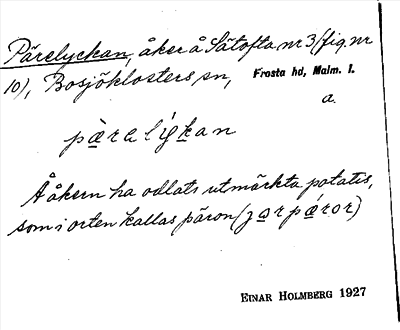 Pärelyckan, åker å Sätofta nr 3 (fig. nr
10), Bosjöklosters sn, Frosta hd, Malm. l.
a.
pæ̀ralýkan
Å åkern ha odlats utmärkta potatis,
som i orten kallas päron (jorpǽror)
EINAR HOLMBERG 1927